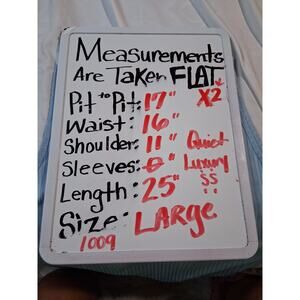 Measurements
Are Taken FLAT
Pit to Pit: 17" X2
Waist: 16"
Shoulder: 11" Quiet
Sleeves: 0" Luxury
Length: 25" $$
Size: LARGE
1009